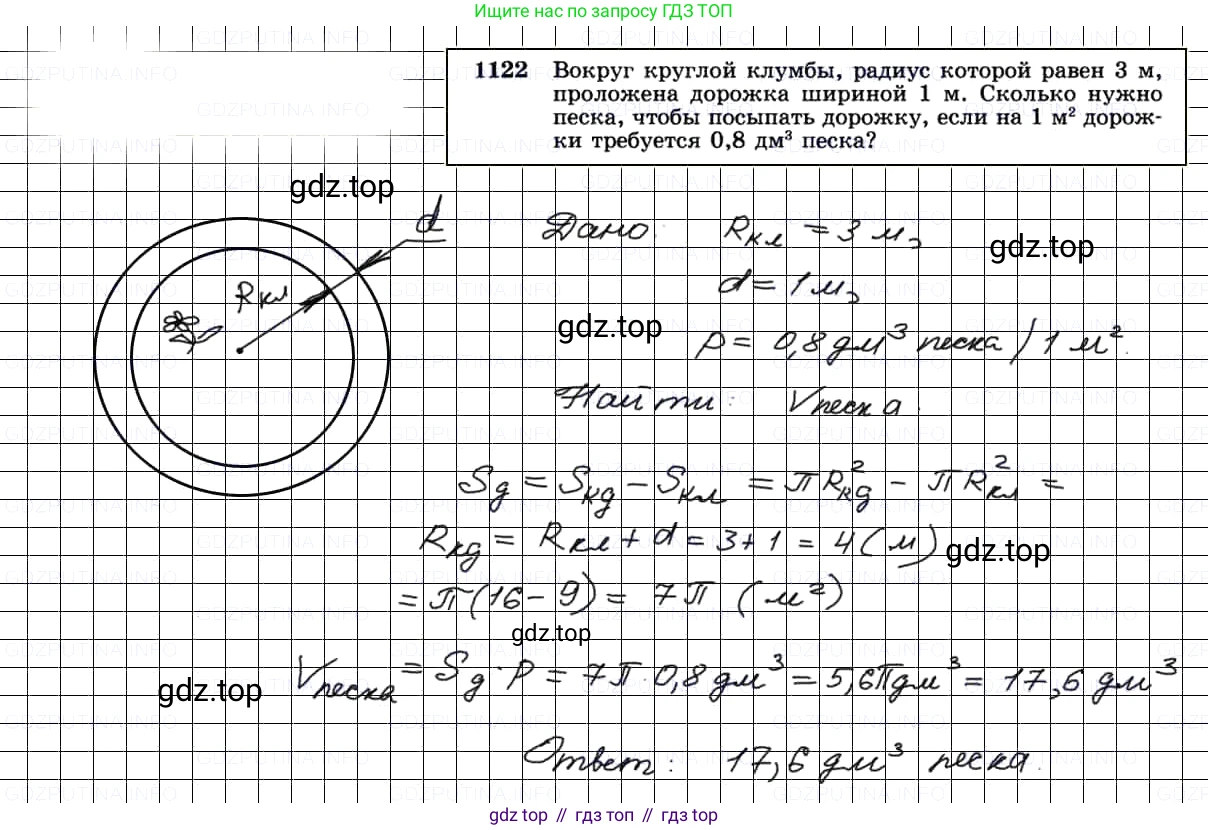 Ищите нас по запросу ГДЗ ТОП
1122 Вокруг круглой клумбы, радиус которой равен 3 м,
проложена дорожка шириной 1 м. Сколько нужно
песка, чтобы посыпать дорожку, если на 1 м² дорож-
ки требуется 0,8 дм³ песка?
gdz.top
d
Дано: Rкл = 3 м,
gdz.top
d = 1 м,
Rкл
gdz.top
p = 0,8 дм³ песка / 1 м².
Найти: Vпеска.
Sд = Sкд − Sкл = πR²кд − πR²кл =
Rкд = Rкл + d = 3+1 = 4 (м)
gdz.top
= π(16 − 9) = 7π (м²)
gdz.top
Vпеска = Sд · p = 7π · 0,8 дм³ = 5,6π дм³ = 17,6 дм³
gdz.top
Ответ: 17,6 дм³ песка.
gdz top // гдз топ // gdz top